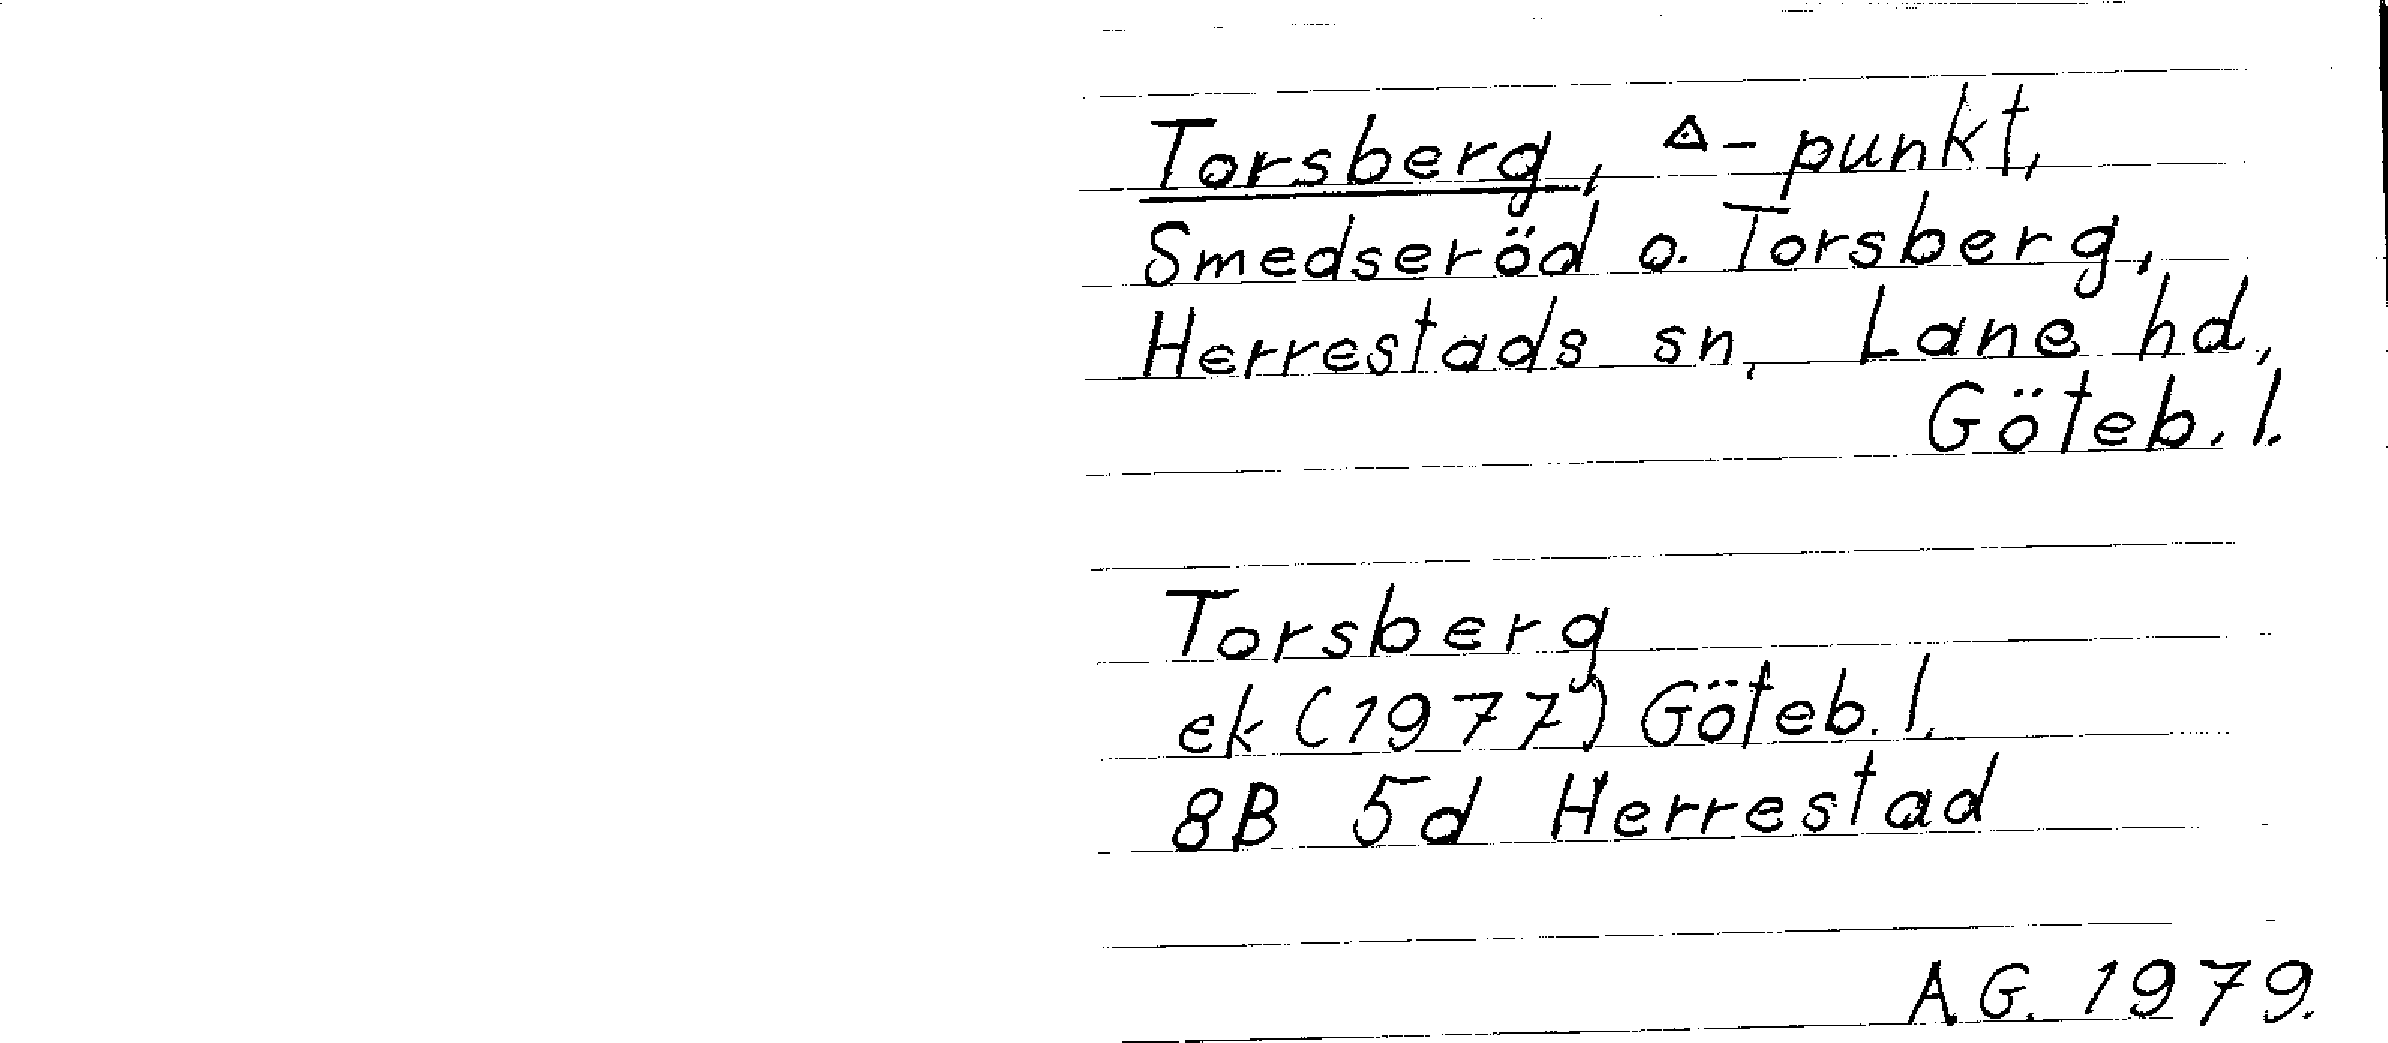 Torsberg, △-punkt,
Smedseröd o. Torsberg,
Herrestads sn, Lane hd,
Göteb. l.
Torsberg
ek (1977) Göteb. l.
8B 5d Herrestad
A.G. 1979.